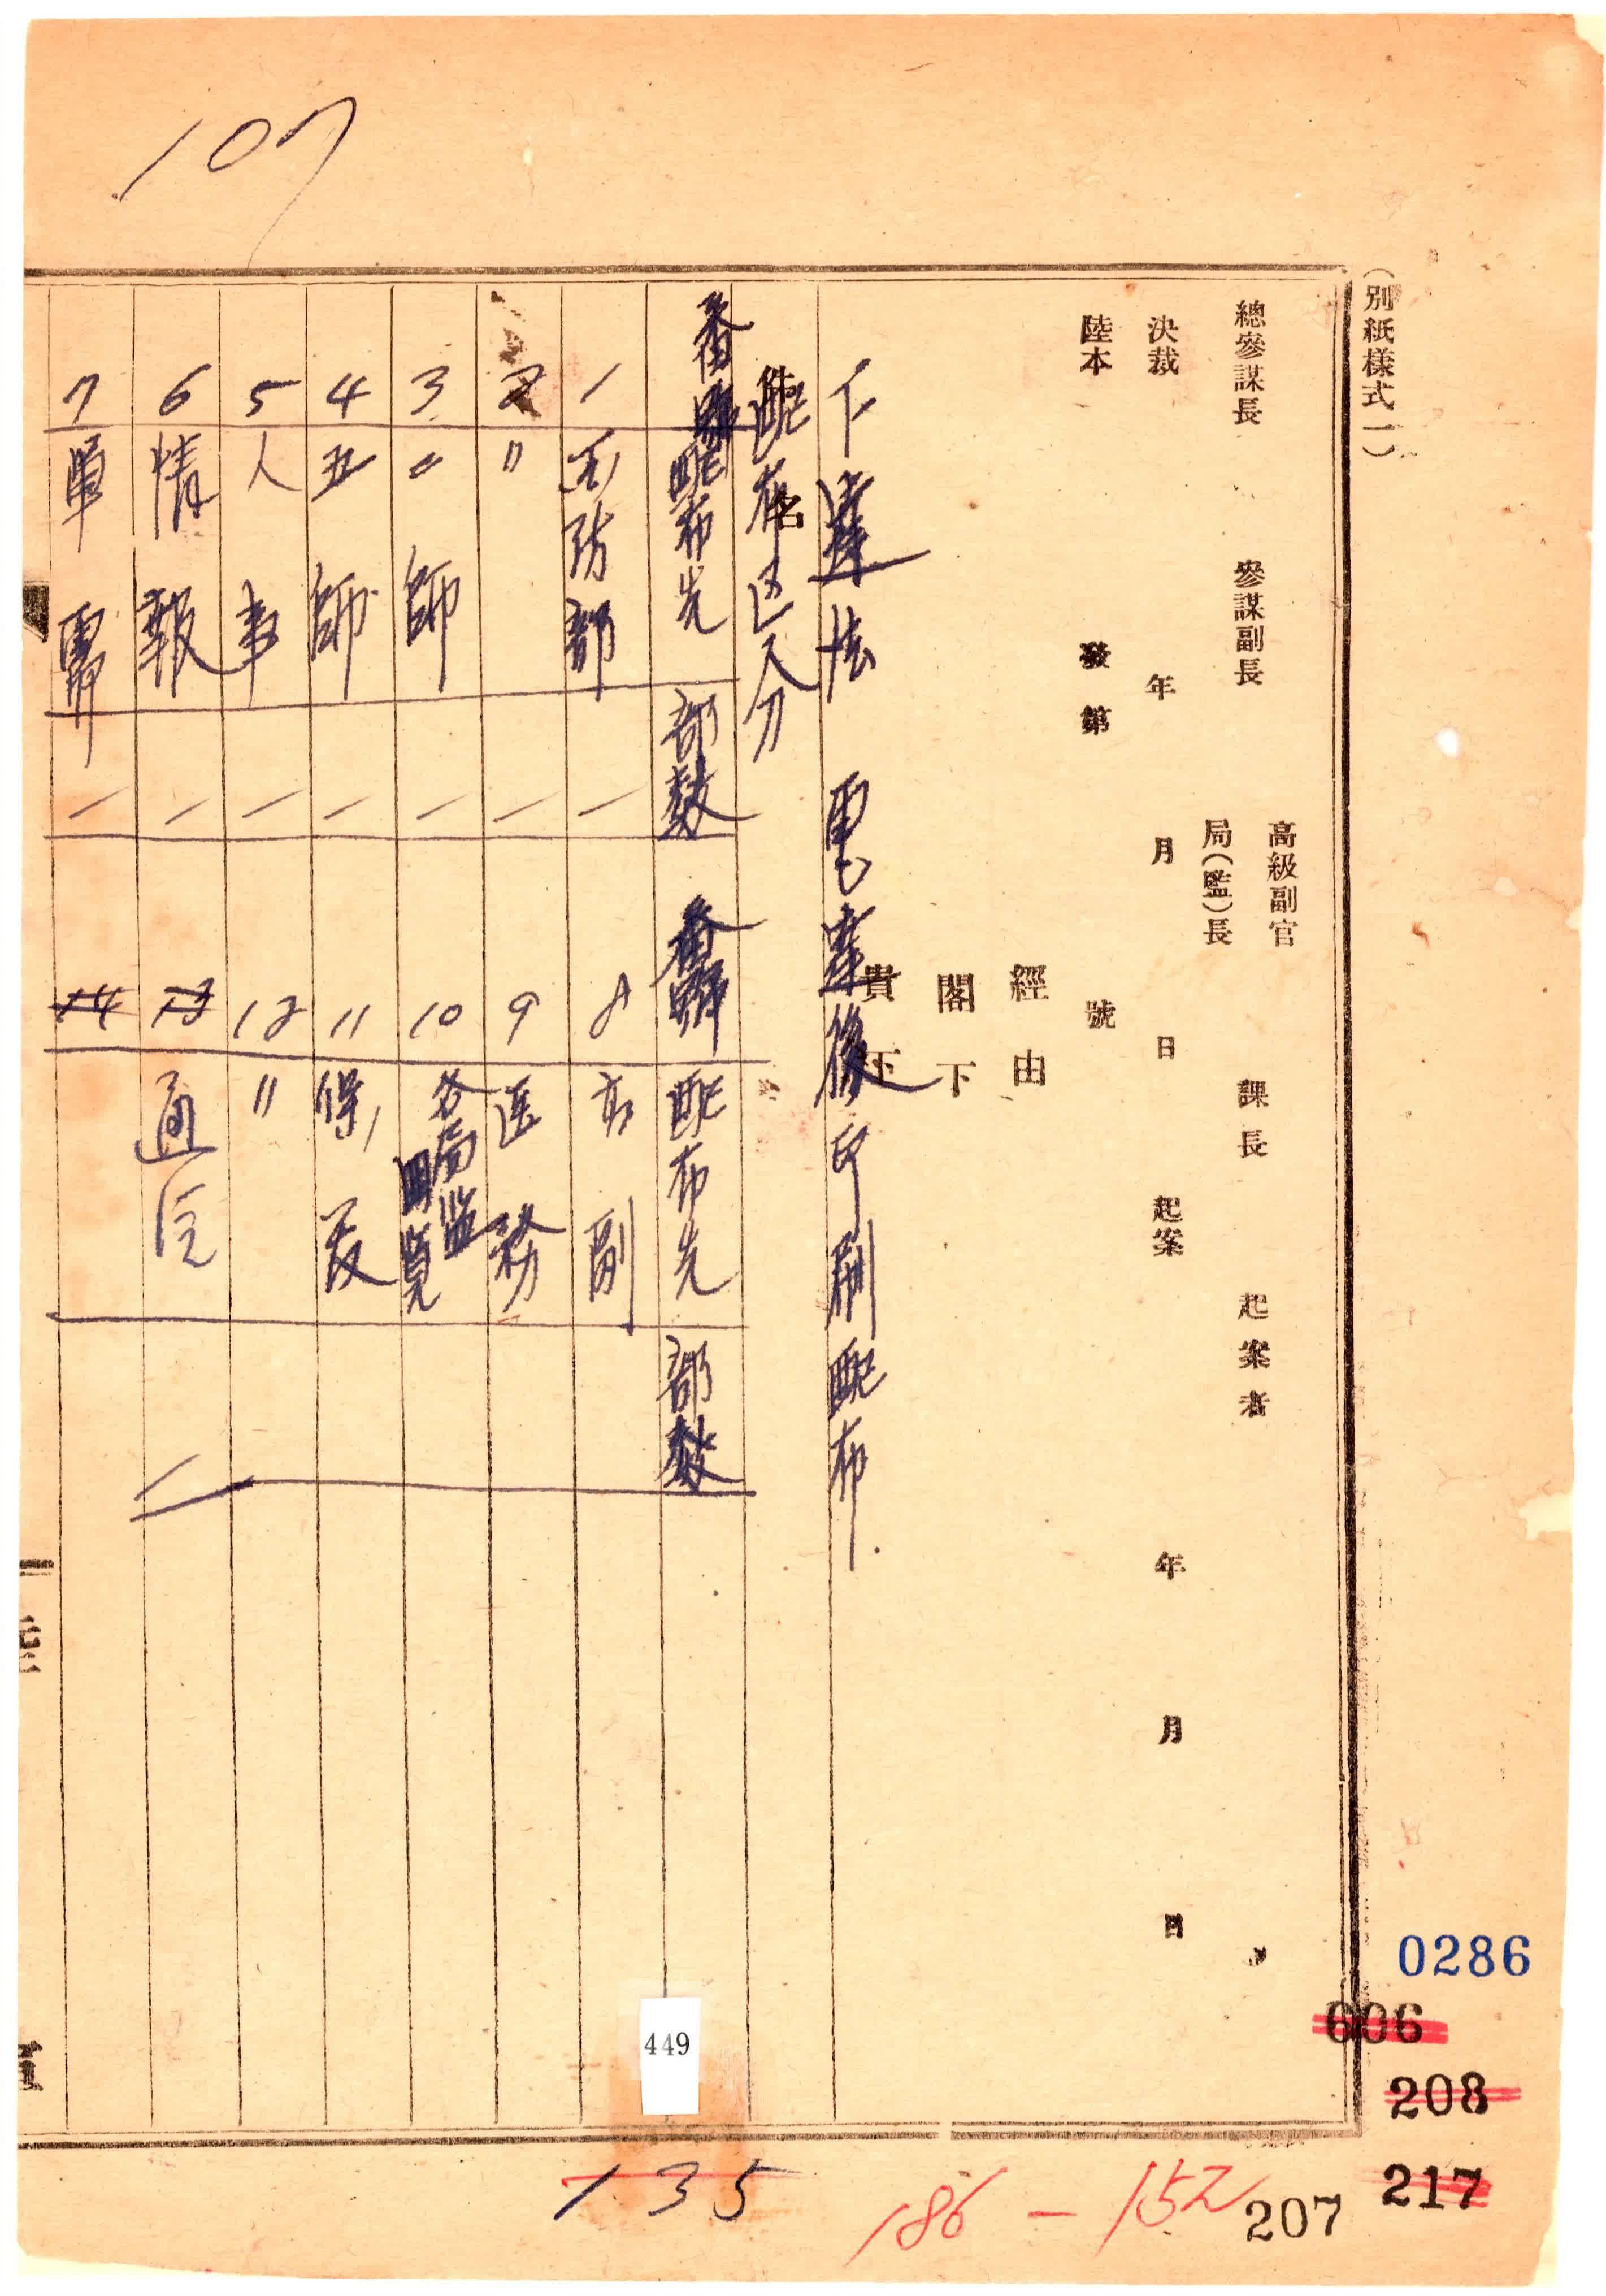 107
（別紙樣式一）
總參謀長 參謀副長 高級副官 局（監）長 課長 起案者
決裁 年 月 日 起案 年 月 日
陸本 發第 號
經由
閣下
貴下
下達法 電達後印刷配布
配布区分
番号 配布先 部数 番号 配布先 部数
1 国防部 一 8 高副
2 〃 一 9 医務
3 〃師 一 10 各局監回覧
4 五師 一 11 保安
5 人事 一 12 〃
6 情報 一 13 通信 一
7 軍需 一 14
0286
606
208
217
207
449
135
186-152